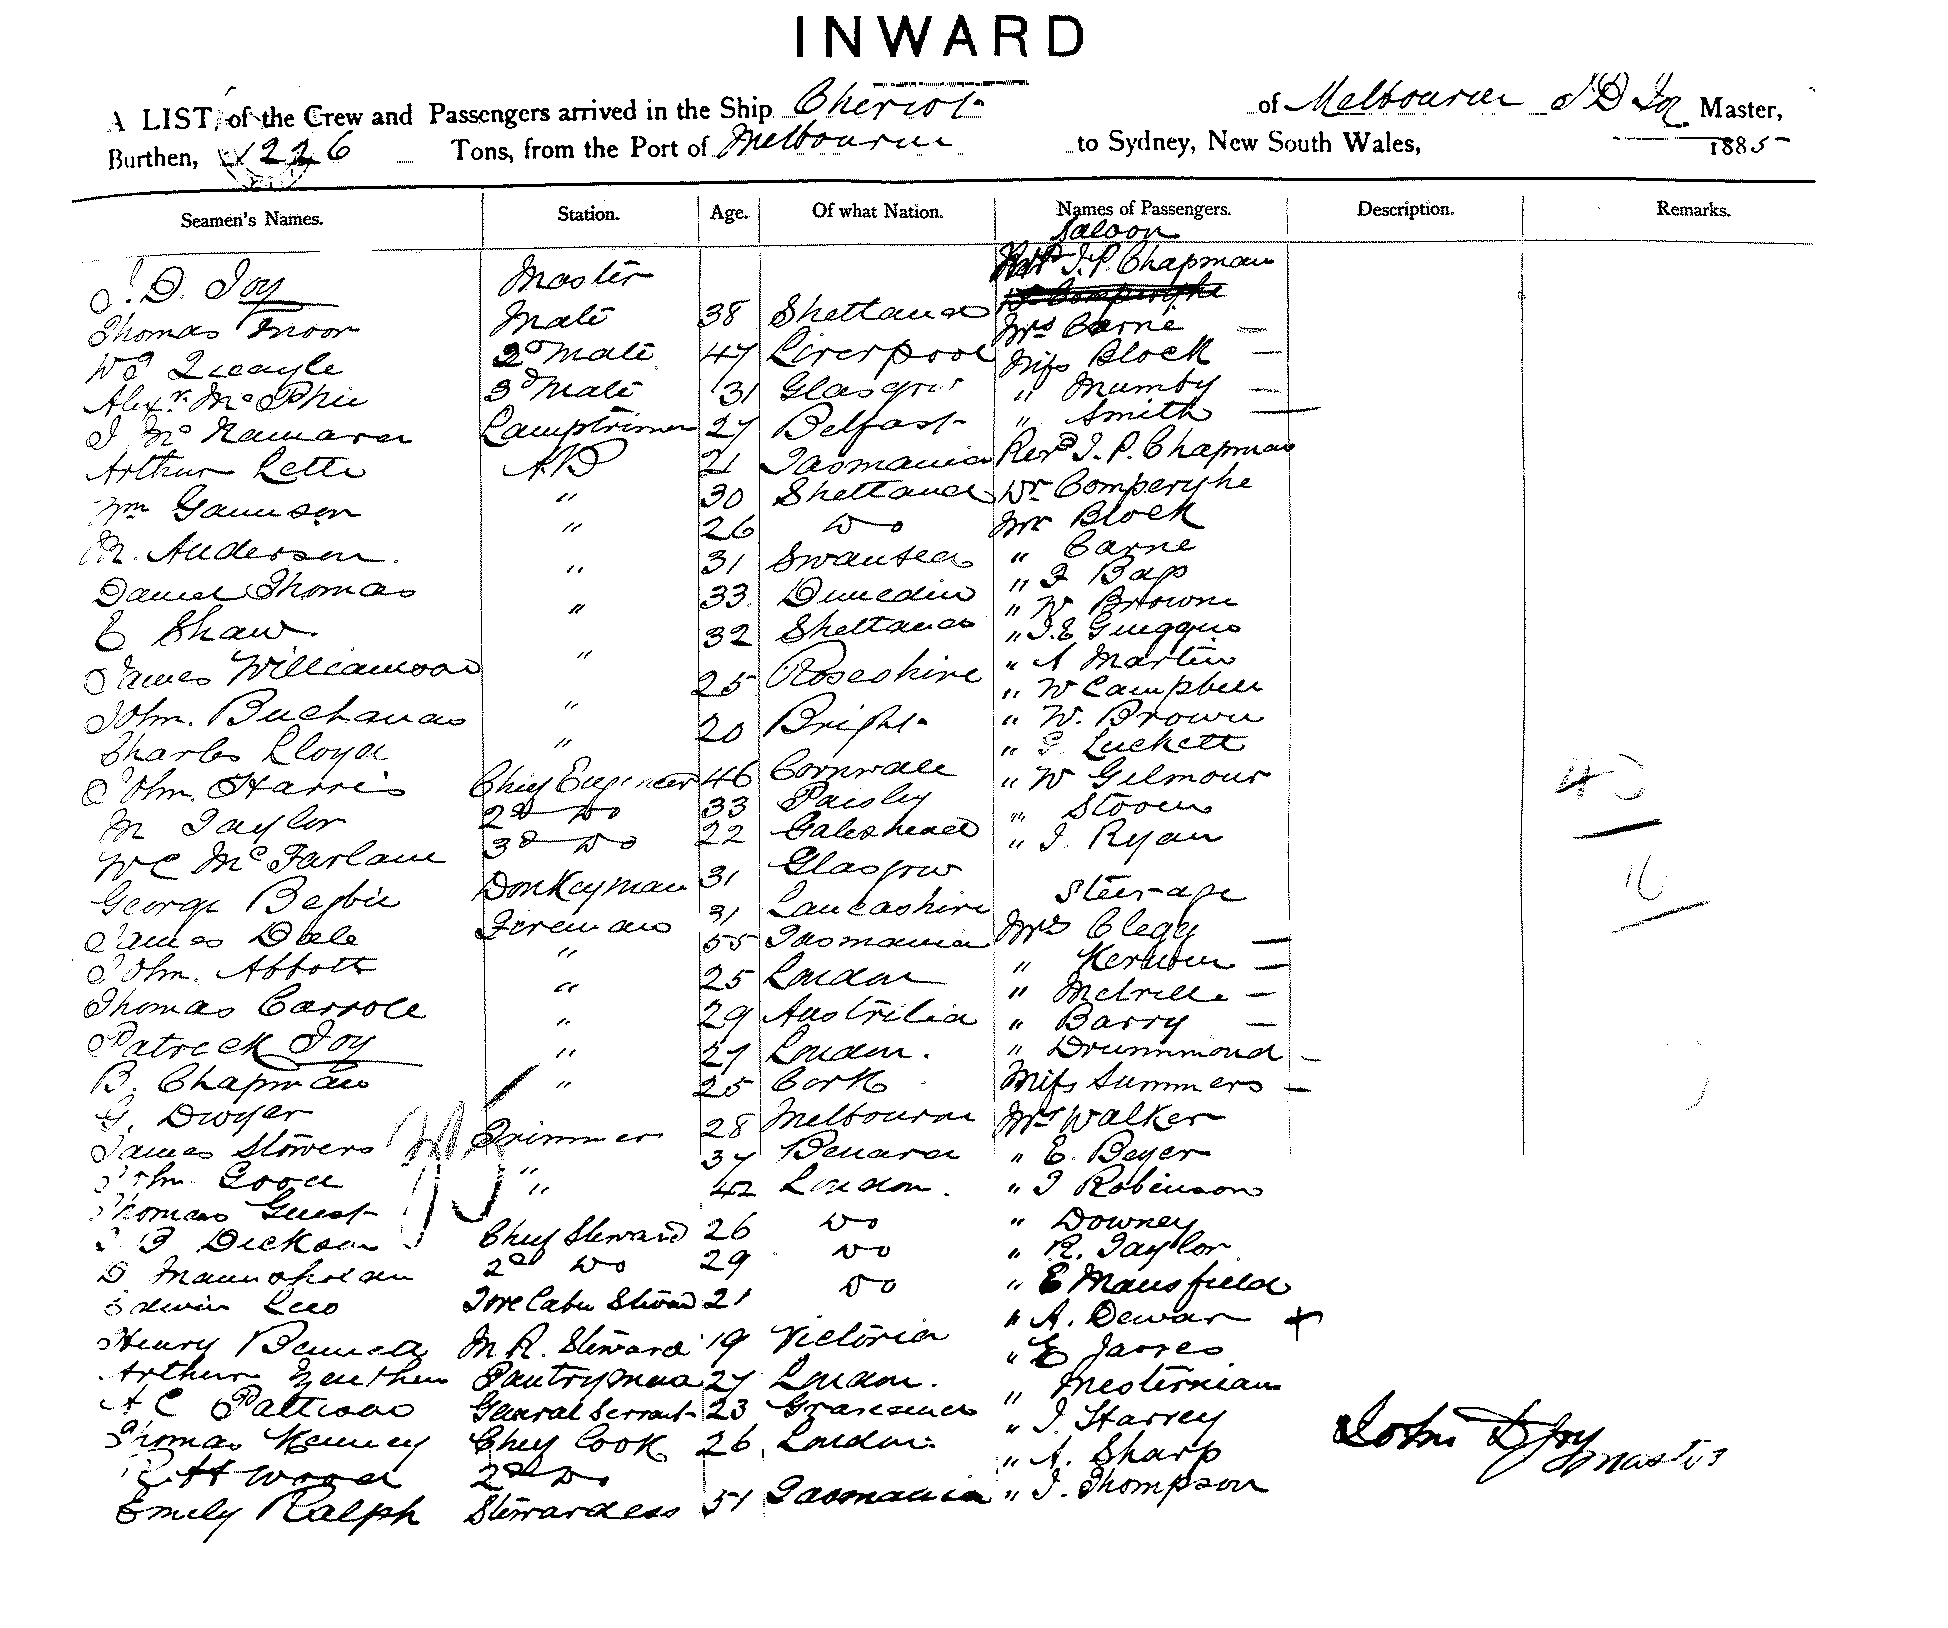 INWARD
A LIST, of the Crew and Passengers arrived in the Ship Cheviot of Melbourne J D Joy Master,
Burthen, 1226 Tons, from the Port of Melbourne to Sydney, New South Wales, 1885
Seamen's Names. Station. Age. Of what Nation. Names of Passengers. Description. Remarks.
Saloon
J. D. Joy Master Mrs J. P. Chapman
Thomas Moor Mate 38 Shetland
Mrs Carne —
Wm Queayle 2d Mate 47 Liverpool Miss Block —
Alexr McPhie 3d Mate 31 Glasgow " Mumby —
J McNamara Lamptrimer 27 Belfast " Smith —
Arthur Lette AB 21 Tasmania Revd J. P. Chapman
Wm Gaunson " 30 Shetland Dr Comperyhe
M. Anderson " 26 Do Mr Block
Daniel Thomas " 31 Swansea " Carne
E Shaw " 33 Dunedin " J Bap
James Williamson " 32 Shetland " W Browne
" J. E
John Buchanan " 25 Roseshire " A Martin
" W Campbell
Charles Lloyd " 20 Bright " W. Brown
" J Luckett
John Harris Chief Engineer 46 Cornwall " W Gilmour
M Taylor 2d Do 33 Paisley " Stoom
W C McFarlane 3d Do 22 Gateshead " J. Ryan
George Begbie Donkeyman 31 Glasgow Steerage
James Dale Fireman 31 Lancashire Mrs Clegg —
John Abbott " 55 Tasmania " Kerwin —
Thomas Carroll " 25 London " Melville —
Patrick Joy " 29 Australia " Barry —
B. Chapman " 27 London. " Drummond —
G. Dwyer " 25 Cork Miss Summers —
James Stowers Trimmer 28 Melbourne Mr Walker
John Good " 37 " E. Beyer
Thomas Guest " 42 London. " J Robinson
J Dickson Chief Steward 26 Do " Downey
D 2d Do 29 Do " R. Taylor
Edwin Leo Fore Cabin Steward 21 Do " E Mansfield
" A. Dewar +
Henry Bennett M. R. Steward 19 Victoria " E
Arthur Pantryman 27 London. "
A C Pattison General Servant 23 Gravesend " J. Harvey
Thomas Kenney Chief Cook 26 London. " A. Sharp
Wood 2d Do
Emily Ralph Stewardess 51 Tasmania " J. Thompson
43
16
John D Joy
Master